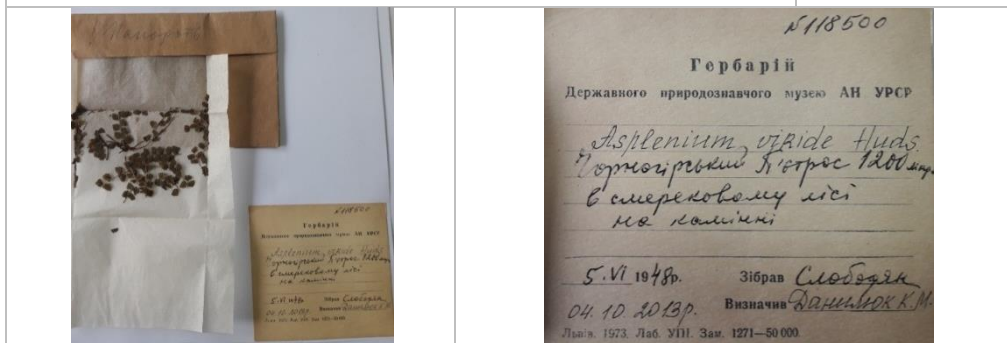 №118500
Гербарій
Державного природознавчого музею АН УРСР
Asplenium viride Huds.
Чорногірський Петрос 1200
в смерековому лісі
на камінні
5.VI 1948р. Зібрав Слободян
04.10.2013р. Визначив Данилюк К.М.
Львів. 1973. Лаб. УПІ. Зам. 1271—50 000.
№118500
Гербарій
Державного природознавчого музею АН УРСР
Asplenium viride Huds.
Чорногірський Петрос 1200
в смерековому лісі
на камінні
5.VI 1948р. Зібрав Слободян
04.10.2013р. Визначив Данилюк К.М.